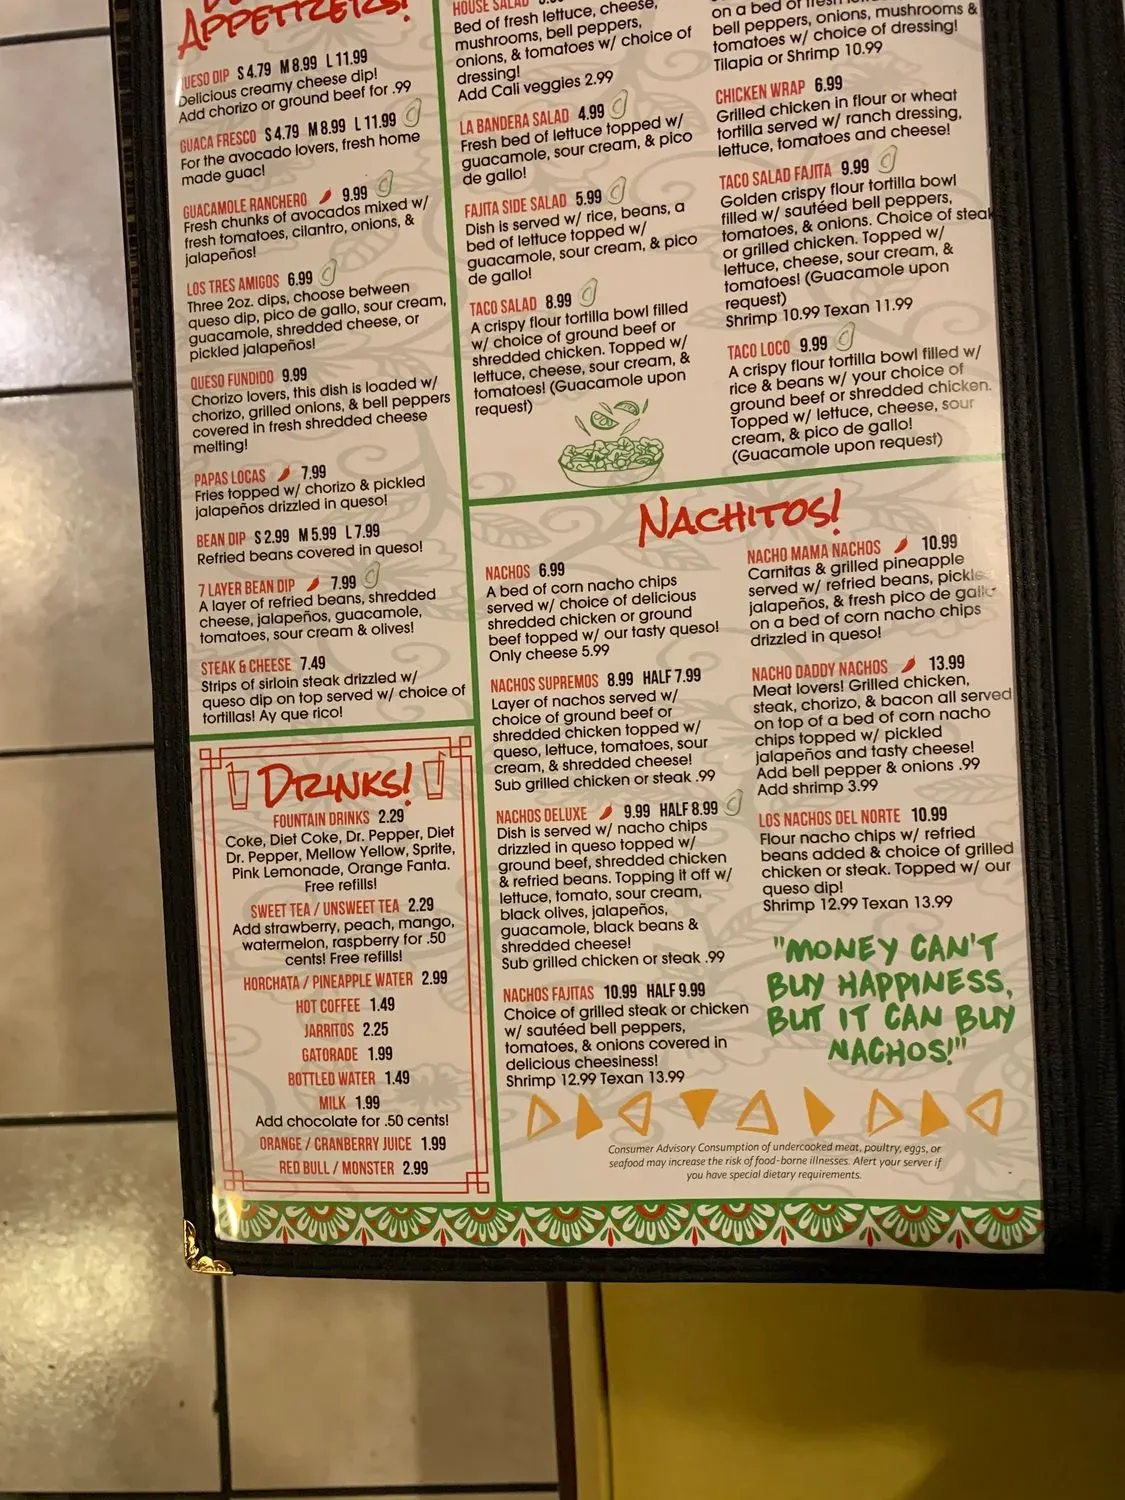 APPETIZERS!
QUESO DIP S 4.79 M 8.99 L 11.99
Delicious creamy cheese dip!
Add chorizo or ground beef for .99
GUACA FRESCO S 4.79 M 8.99 L 11.99
For the avocado lovers, fresh home
made guac!
GUACAMOLE RANCHERO 9.99
Fresh chunks of avocados mixed w/
fresh tomatoes, cilantro, onions, &
jalapeños!
LOS TRES AMIGOS 6.99
Three 2oz. dips, choose between
queso dip, pico de gallo, sour cream,
guacamole, shredded cheese, or
pickled jalapeños!
QUESO FUNDIDO 9.99
Chorizo lovers, this dish is loaded w/
chorizo, grilled onions, & bell peppers
covered in fresh shredded cheese
melting!
PAPAS LOCAS 7.99
Fries topped w/ chorizo & pickled
jalapeños drizzled in queso!
BEAN DIP S 2.99 M 5.99 L 7.99
Refried beans covered in queso!
7 LAYER BEAN DIP 7.99
A layer of refried beans, shredded
cheese, jalapeños, guacamole,
tomatoes, sour cream & olives!
STEAK & CHEESE 7.49
Strips of sirloin steak drizzled w/
queso dip on top served w/ choice of
tortillas! Ay que rico!
DRINKS!
FOUNTAIN DRINKS 2.29
Coke, Diet Coke, Dr. Pepper, Diet
Dr. Pepper, Mellow Yellow, Sprite,
Pink Lemonade, Orange Fanta.
Free refills!
SWEET TEA / UNSWEET TEA 2.29
Add strawberry, peach, mango,
watermelon, raspberry for .50
cents! Free refills!
HORCHATA / PINEAPPLE WATER 2.99
HOT COFFEE 1.49
JARRITOS 2.25
GATORADE 1.99
BOTTLED WATER 1.49
MILK 1.99
Add chocolate for .50 cents!
ORANGE / CRANBERRY JUICE 1.99
RED BULL / MONSTER 2.99
HOUSE SALAD
Bed of fresh lettuce, cheese,
mushrooms, bell peppers,
onions, & tomatoes w/ choice of
dressing!
Add Cali veggies 2.99
LA BANDERA SALAD 4.99
Fresh bed of lettuce topped w/
guacamole, sour cream, & pico
de gallo!
FAJITA SIDE SALAD 5.99
Dish is served w/ rice, beans, a
bed of lettuce topped w/
guacamole, sour cream, & pico
de gallo!
TACO SALAD 8.99
A crispy flour tortilla bowl filled
w/ choice of ground beef or
shredded chicken. Topped w/
lettuce, cheese, sour cream, &
tomatoes! (Guacamole upon
request)
on a bed of
bell peppers, onions, mushrooms &
tomatoes w/ choice of dressing!
Tilapia or Shrimp 10.99
CHICKEN WRAP 6.99
Grilled chicken in flour or wheat
tortilla served w/ ranch dressing,
lettuce, tomatoes and cheese!
TACO SALAD FAJITA 9.99
Golden crispy flour tortilla bowl
filled w/ sautéed bell peppers,
tomatoes, & onions. Choice of steak
or grilled chicken. Topped w/
lettuce, cheese, sour cream, &
tomatoes! (Guacamole upon
request)
Shrimp 10.99 Texan 11.99
TACO LOCO 9.99
A crispy flour tortilla bowl filled w/
rice & beans w/ your choice of
ground beef or shredded chicken.
Topped w/ lettuce, cheese, sour
cream, & pico de gallo!
(Guacamole upon request)
NACHITOS!
NACHOS 6.99
A bed of corn nacho chips
served w/ choice of delicious
shredded chicken or ground
beef topped w/ our tasty queso!
Only cheese 5.99
NACHOS SUPREMOS 8.99 HALF 7.99
Layer of nachos served w/
choice of ground beef or
shredded chicken topped w/
queso, lettuce, tomatoes, sour
cream, & shredded cheese!
Sub grilled chicken or steak .99
NACHOS DELUXE 9.99 HALF 8.99
Dish is served w/ nacho chips
drizzled in queso topped w/
ground beef, shredded chicken
& refried beans. Topping it off w/
lettuce, tomato, sour cream,
black olives, jalapeños,
guacamole, black beans &
shredded cheese!
Sub grilled chicken or steak .99
NACHOS FAJITAS 10.99 HALF 9.99
Choice of grilled steak or chicken
w/ sautéed bell peppers,
tomatoes, & onions covered in
delicious cheesiness!
Shrimp 12.99 Texan 13.99
NACHO MAMA NACHOS 10.99
Carnitas & grilled pineapple
served w/ refried beans, pickle
jalapeños, & fresh pico de gallo
on a bed of corn nacho chips
drizzled in queso!
NACHO DADDY NACHOS 13.99
Meat lovers! Grilled chicken,
steak, chorizo, & bacon all served
on top of a bed of corn nacho
chips topped w/ pickled
jalapeños and tasty cheese!
Add bell pepper & onions .99
Add shrimp 3.99
LOS NACHOS DEL NORTE 10.99
Flour nacho chips w/ refried
beans added & choice of grilled
chicken or steak. Topped w/ our
queso dip!
Shrimp 12.99 Texan 13.99
"MONEY CAN'T
BUY HAPPINESS,
BUT IT CAN BUY
NACHOS!"
Consumer Advisory Consumption of undercooked meat, poultry, eggs, or
seafood may increase the risk of food-borne illnesses. Alert your server if
you have special dietary requirements.